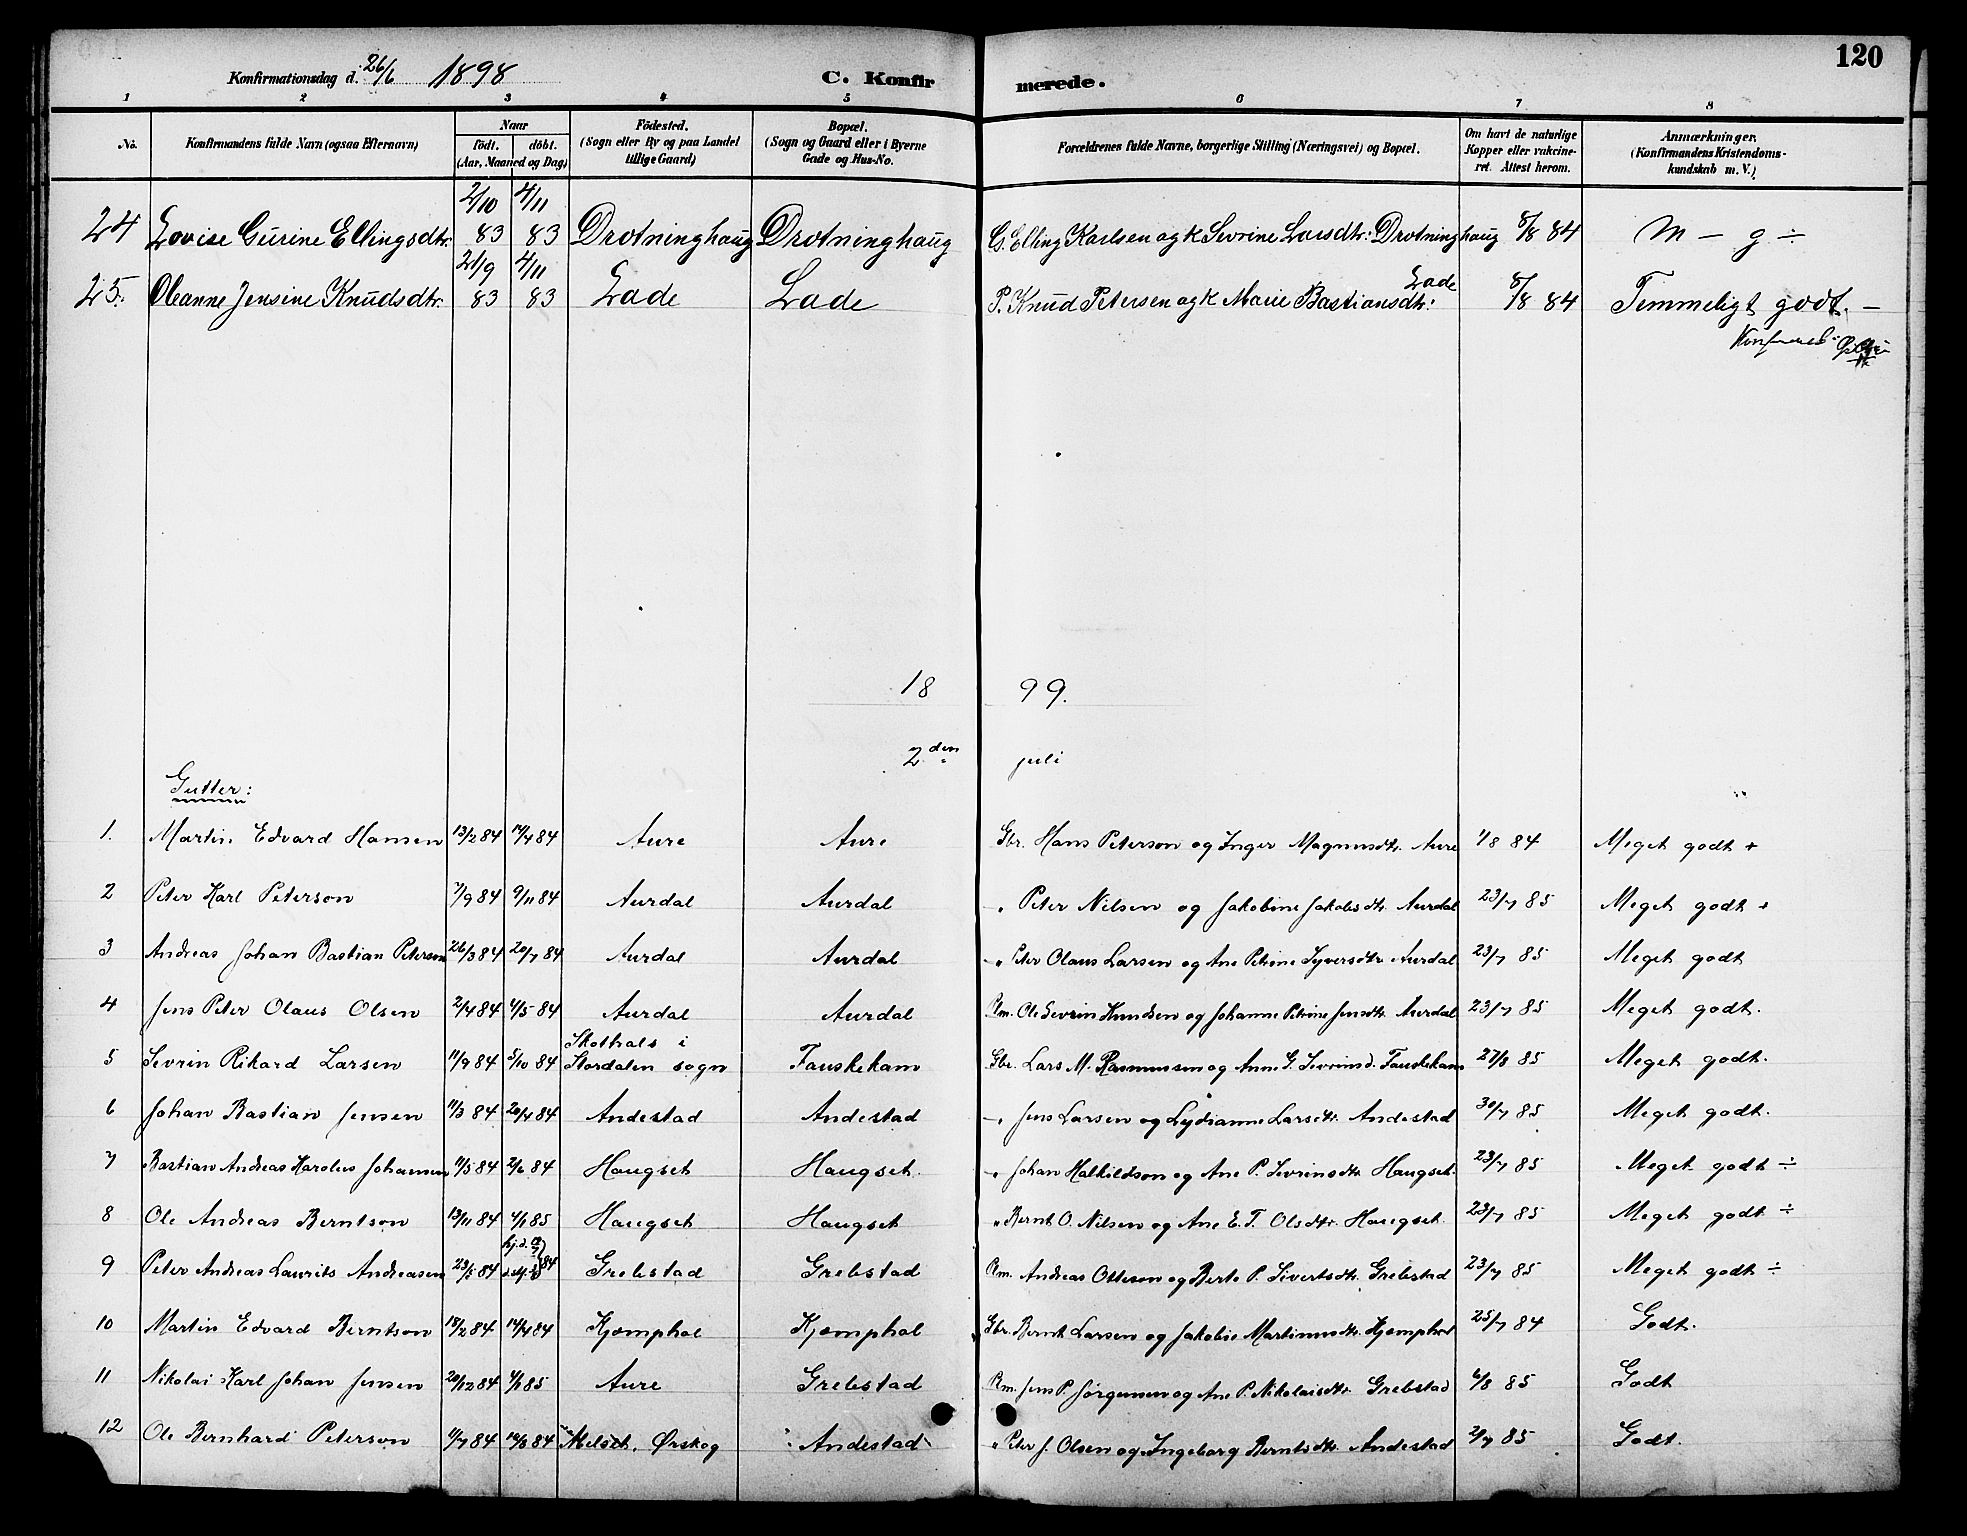 120
Konfirmationsdag d. 26/6 1898 C. Konfirmerede.
1 2 3 4 5 6 7 8
No. Konfirmandens fulde Navn (ogsaa Efternavn) Naar födt. döbt. (Aar, Maaned og Dag) Födested. (Sogn eller By og paa Landet tillige Gaard) Bopæl. (Sogn og Gaard eller i Byerne Gade og Hus-No. Forældrenes fulde Navne, borgerlige Stilling (Næringsvei) og Bopæl. Om havt de naturlige Kopper eller vakcineret. Attest herom. Anmærkninger. (Konfirmandens Kristendomskundskab m. V.)
24 Lovise Gurine Ellingsdtr. 2/10 83 4/11 83 Drotninghaug Drotninghaug G. Elling Karlsen og K Sevrine Larsdtr: Drotninghaug 8/8 84 M – g ÷
25. Oleanne Jensine Knudsdtr. 21/9 83 4/11 83 Lade Lade P. Knud Petersen og K Marie Bastiansdtr: Lade 8/8 84 Temmeligt godt. –
18 99.
2den juli
Gutter:
1. Martin Edvard Hansen 13/2 84 14/4 84 Aure Aure Gbr. Hans Peterson og Inger Magnusdtr. Aure 1/8 84 Meget godt +
2 Peter Karl Peterson 7/9 84 9/11 84 Aurdal Aurdal –" Peter Nilsen og Jakobine Jakobsdtr. Aurdal 23/7 85 Meget godt +
3 Andreas Johan Bastian Peterson 26/3 84 20/4 84 Aurdal Aurdal –" Peter Olaus Larsen og Ane Petrine Syversdtr. Aurdal 23/7 85 Meget godt
4 Jens Peter Olaus Olsen 2/4 84 4/5 84 Aurdal Aurdal Rm. Ole Sevrin Knudsen og Johanne Petrine Jensdtr. Aurdal 23/7 85 Meget godt.
5 Sevrin Rikard Larsen 11/9 84 5/10 84 Skothals i Stordalen sogn Fauskekam Gbr. Lars M. Rasmussen og Anne G. Sevrinsd. Fauskekam 27/8 85 Meget godt.
6 Johan Bastian Jensen 11/3 84 20/4 84 Andestad Andestad –" Jens Larsen og Lydianne Larsdtr. Andestad 30/7 85 Meget godt.
7 Bastian Andreas Karolus Johansen 11/5 84 2/6 84 Haugset Haugset –" Johan Halkildson og Ane P. Sevrinsdtr. Haugset. 23/7 85 Meget godt ÷
8 Ole Andreas Berntson 13/11 84 4/1 85 Haugset Haugset " Bernt O. Nilsen og Ane E. T. Olsdtr. Haugset. 23/7 85 Meget godt ÷
9 Peter Andreas Laurits Andreasen 23/5 84 hj.d. 84 Grebstad Grebstad Rm. Andreas Otteson og Berte P. Sivertsdtr. Grebstad 23/7 85 Meget godt ÷
10 Martin Edvard Berntson 18/2 84 14/4 84 Kjæmphol Kjæmphol Gbr. Bernt Larsen og Jakobie Martinusdtr. Kjæmphol 25/7 84 Godt.
11 Nikolai Karl Johan Jensen 20/12 84 4/1 85 Aure Grebstad Rm. Jens P. Jørgensen og Ane P. Nikolaisdtr. Grebstad 6/8 85 Godt
12 Ole Bernhard Peterson 11/7 84 14/8 84 Melset, Ørskog Andestad " Peter J. Olsen og Ingeborg Berntsdtr. Andestad 2/7 85 Godt.